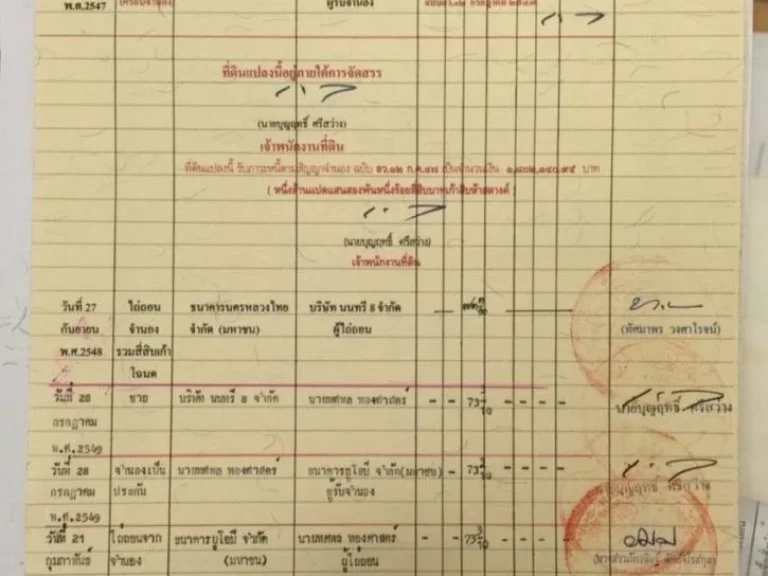 พ.ศ.2547 (ครอบจำนอง) ผู้รับจำนอง
ที่ดินแปลงนี้อยู่ภายใต้การจัดสรร
(นายบุญฤทธิ์ ศรีสว่าง)
เจ้าพนักงานที่ดิน
ที่ดินแปลงนี้ รับภาระหนี้ตามสัญญาจำนอง ฉบับ ลว.๑๒ ก.ค.๔๗ เป็นจำนวนเงิน ๑,๘๐๒,๑๔๐.๙๕ บาท
( หนึ่งล้านแปดแสนสองพันหนึ่งร้อยสี่สิบบาทเก้าสิบห้าสตางค์ )
(นายบุญฤทธิ์ ศรีสว่าง)
เจ้าพนักงานที่ดิน
วันที่ 27 ไถ่ถอน ธนาคารนครหลวงไทย บริษัท นนทรี 8 จำกัด
กันยายน จำนอง จำกัด (มหาชน) ผู้ไถ่ถอน (ทัศมาพร วงศาโรจน์)
พ.ศ.2548 รวมสี่สิบเก้า
โฉนด
วันที่ 28 ขาย บริษัท นนทรี 8 จำกัด นายทศพล ทองศาสตร์ - - 73 3/10 - - - - นายบุญฤทธิ์ ศรีสว่าง
กรกฎาคม
พ.ศ.2549
วันที่ 28 จำนองเป็น นายทศพล ทองศาสตร์ ธนาคารยูโอบี จำกัด(มหาชน) - - 73 3/10 - - - -
กรกฎาคม ประกัน ผู้รับจำนอง นายบุญฤทธิ์ ศรีสว่าง
พ.ศ.2549
วันที่ 21 ไถ่ถอนจาก ธนาคารยูโอบี จำกัด นายทศพล ทองศาสตร์ - - 73 3/10 - - - -
กุมภาพันธ์ จำนอง (มหาชน) ผู้ไถ่ถอน